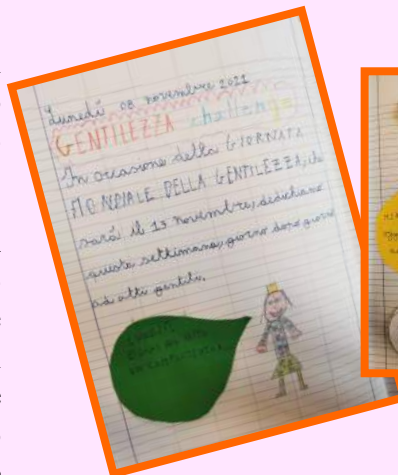 Lunedì 08 novembre 2021
GENTILEZZA challenge
In occasione della GIORNATA
MONDIALE DELLA GENTILEZZA, che
sarà il 13 novembre, dedichiamo
questa settimana, giorno dopo giorno
ad atti gentili.
LUNEDÌ